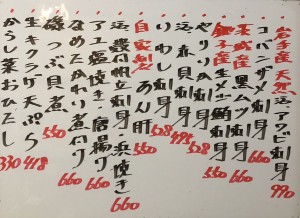 岩手産 天然 活アワビ刺身 990
コバンザメ刺身 660
茨城産 黒ムツ刺身 660
銚子産 生メジ鮪刺身 550
やりいか刺身 528
活赤貝刺身 495
いわし刺身 528
自家製 あん肝 528
活殻付帆立刺身・浜焼き 660
アユ塩焼き・唐揚げ 660
なめたかれい煮付け 660
磯つぶ貝煮 550
生キクラゲ天ぷら 418
からし菜おひたし 330